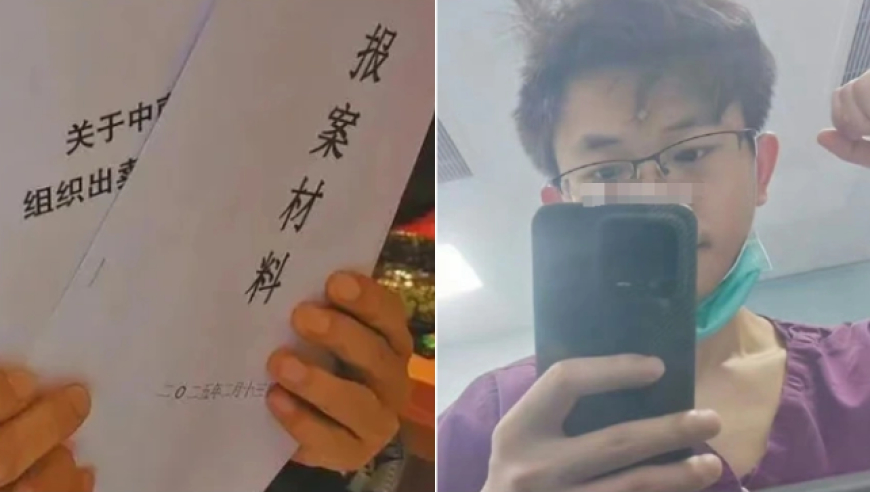 关于中
组织出
报案材料
二〇二五年二月十三